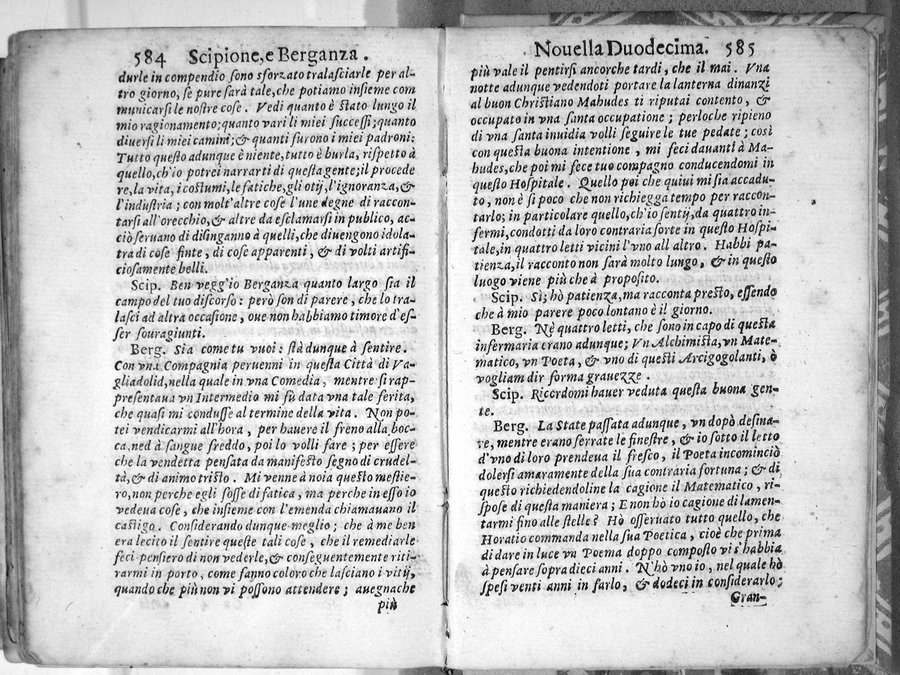 584 Scipione, e Berganza.
durle in compendio sono sforzato tralasciarle per al-
tro giorno, se pure sarà tale, che potiamo insieme com
municarsi le nostre cose. Vedi quanto è stato lungo il
mio ragionamento; quanto varij li miei successi; quanto
diversi li miei camini; & quanti furono i miei padroni:
Tutto questo adunque è niente, tutto è burla, rispetto à
quello, ch'io potrei narrarti di questa gente; il procede
re, la vita, i costumi, le fatiche, gli otij, l'ignoranza, &
l'industria; con molt'altre cose l'une degne di raccon-
tarsi all'orecchio, & altre da esclamarsi in publico, ac-
ciò seruano di disinganno à quelli, che diuengono idola-
tra di cose finte, di cose apparenti, & di volti artifi-
ciosamente belli.
Scip. Ben vegg'io Berganza quanto largo sia il
campo del tuo discorso: però son di parere, che lo tra-
lasci ad altra occasione, oue non habbiamo timore d'es-
ser souragiunti.
Berg. Sia come tu vuoi: stà dunque à sentire.
Con vna Compagnia peruenni in questa Città di Va-
gliadolid, nella quale in vna Comedia, mentre si rap-
presentaua vn Intermedio mi fù data vna tale ferita,
che quasi mi condusse al termine della vita. Non po-
tei vendicarmi all'hora, per hauere il freno alla boc-
ca, ned à sangue freddo, poi lo volli fare; per essere
che la vendetta pensata da manifesto segno di crudel-
tà, & di animo tristo. Mi venne à noia questo mestie-
ro, non perche egli fosse di fatica, ma perche in esso io
vedeua cose, che insieme con l'emenda chiamauano il
castigo. Considerando dunque meglio; che à me ben
era lecito il sentire queste tali cose, che il remediarle
feci pensiero di non vederle, & conseguentemente riti-
rarmi in porto, come fanno coloro che lasciano i vitij,
quando che più non vi possono attendere; auegnache
più
Nouella Duodecima. 585
più vale il pentirsi ancorche tardi, che il mai. Vna
notte adunque vedendoti portare la lanterna dinanzi
al buon Christiano Mahudes ti riputai contento, &
occupato in vna santa occupatione; perloche ripieno
di vna santa inuidia volli seguire le tue pedate; così
con questa buona intentione, mi feci dauanti à Ma-
hudes, che poi mi fece tuo compagno conducendomi in
questo Hospitale. Quello poi che quiui mi sia accadu-
to, non è si poco che non richiegga tempo per raccon-
tarlo; in particolare quello, ch'io sentij, da quattro in-
fermi, condotti da loro contraria sorte in questo Hospi-
tale, in quattro letti vicini l'vno all altro. Habbi pa-
tienza, il racconto non sarà molto lungo, & in questo
luogo viene più che à proposito.
Scip. Sì; hò patienza, ma racconta presto, essendo
che à mio parere poco lontano è il giorno.
Berg. Nè quattro letti, che sono in capo di questa
infermaria erano adunque; Vn Alchimista, vn Mate-
matico, vn Poeta, & vno di questi Arcigogolanti, ò
vogliam dir forma grauezze.
Scip. Riccrdomi hauer veduta questa buona gen-
te.
Berg. La State passata adunque, vn dopò desina-
re, mentre erano serrate le finestre, & io sotto il letto
d'vno di loro prendeua il fresco, il Poeta incominciò
dolersi amaramente della sua contraria fortuna; & di
questo richiedendoline la cagione il Matematico, ri-
spose di questa maniera; E non hò io cagione di lamen-
tarmi fino alle stelle? Hò osseruato tutto quello, che
Horatio commanda nella sua Poetica, cioè che prima
di dare in luce vn Poema doppo composto vi s'habbia
à pensare sopra dieci anni. N'hò vno io, nel quale hò
spesi venti anni in farlo, & dodeci in considerarlo;
Gran-